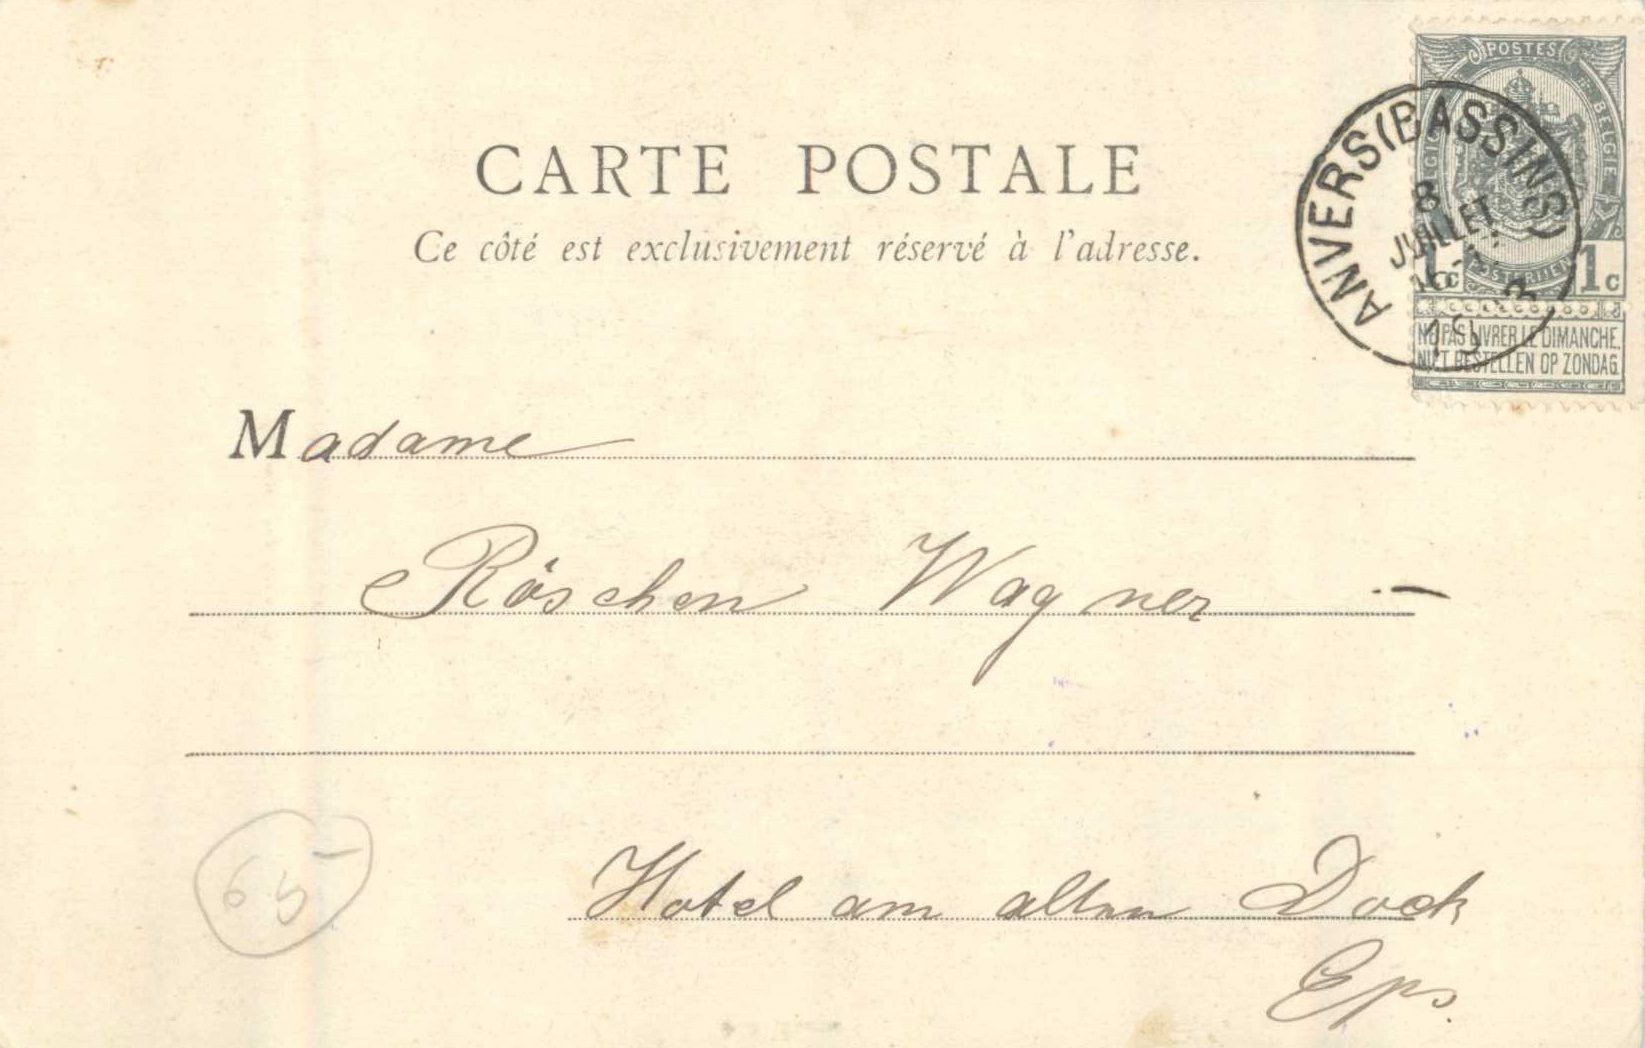 CARTE POSTALE
Ce côté est exclusivement réservé à l'adresse.
POSTES
BELGIE
POSTERIJEN
1c 1c
NE PAS LIVRER LE DIMANCHE.
NIET BESTELLEN OP ZONDAG.
ANVERS (BASSINS)
8
JUILLET
19 3
Madame
Röschen Wagner
Hotel am alten Dock
Eps.
65